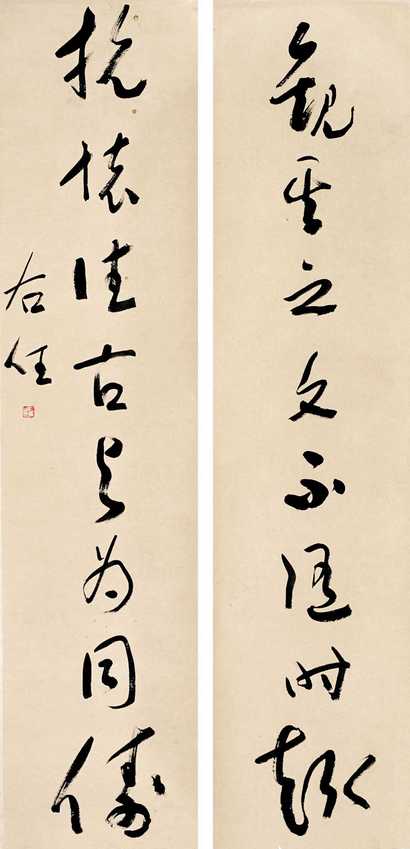 觀其之文不隨時趨
抗懷往古與為同儔
右任